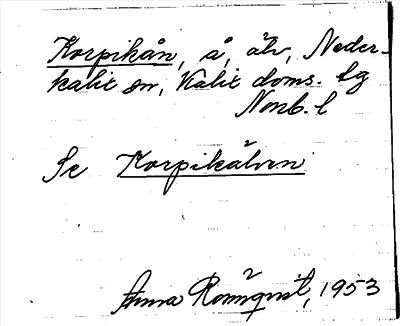 Korpikån, å, älv, Neder-
kalix sn, Kalix doms. tg
Norrb. l
Se Korpikälven
Anna Rönnqvist, 1953